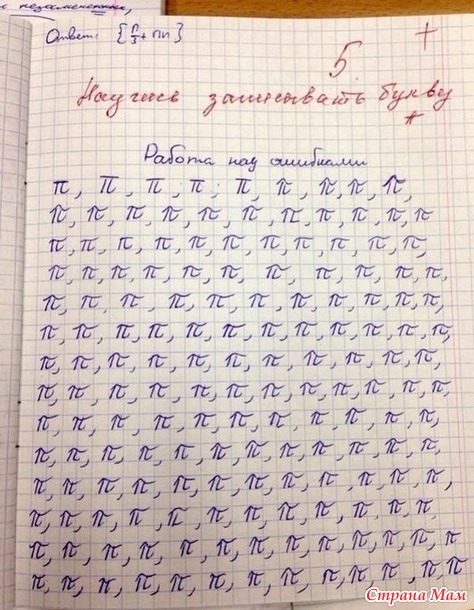 незаменённые,
Ответ: {π/3 + πn}
5 +
Научись записывать букву
π
Работа над ошибками
π, π, π, π, π, π, π, π, π,
π, π, π, π, π, π, π, π, π, π, π
π, π, π, π, π, π, π, π, π, π, π,
π, π, π, π, π, π, π, π, π, π, π,
π, π, π, π, π, π, π, π, π, π, π, π,
π, π, π, π, π, π, π, π, π, π, π, π, π,
π, π, π, π, π, π, π, π, π, π, π,
π, π, π, π, π, π, π, π, π, π, π, π,
π, π, π, π, π, π, π, π, π, π, π,
π, π, π, π, π, π, π, π, π, π, π, π,
π, π, π, π, π, π, π, π, π, π, π, π,
π, π, π, π, π, π, π, π, π, π, π, π
π, π, π, π, π, π, π, π, π, π, π, π, π
π, π, π, π, π, π, π, π, π, π, π, π, π
Страна Мам